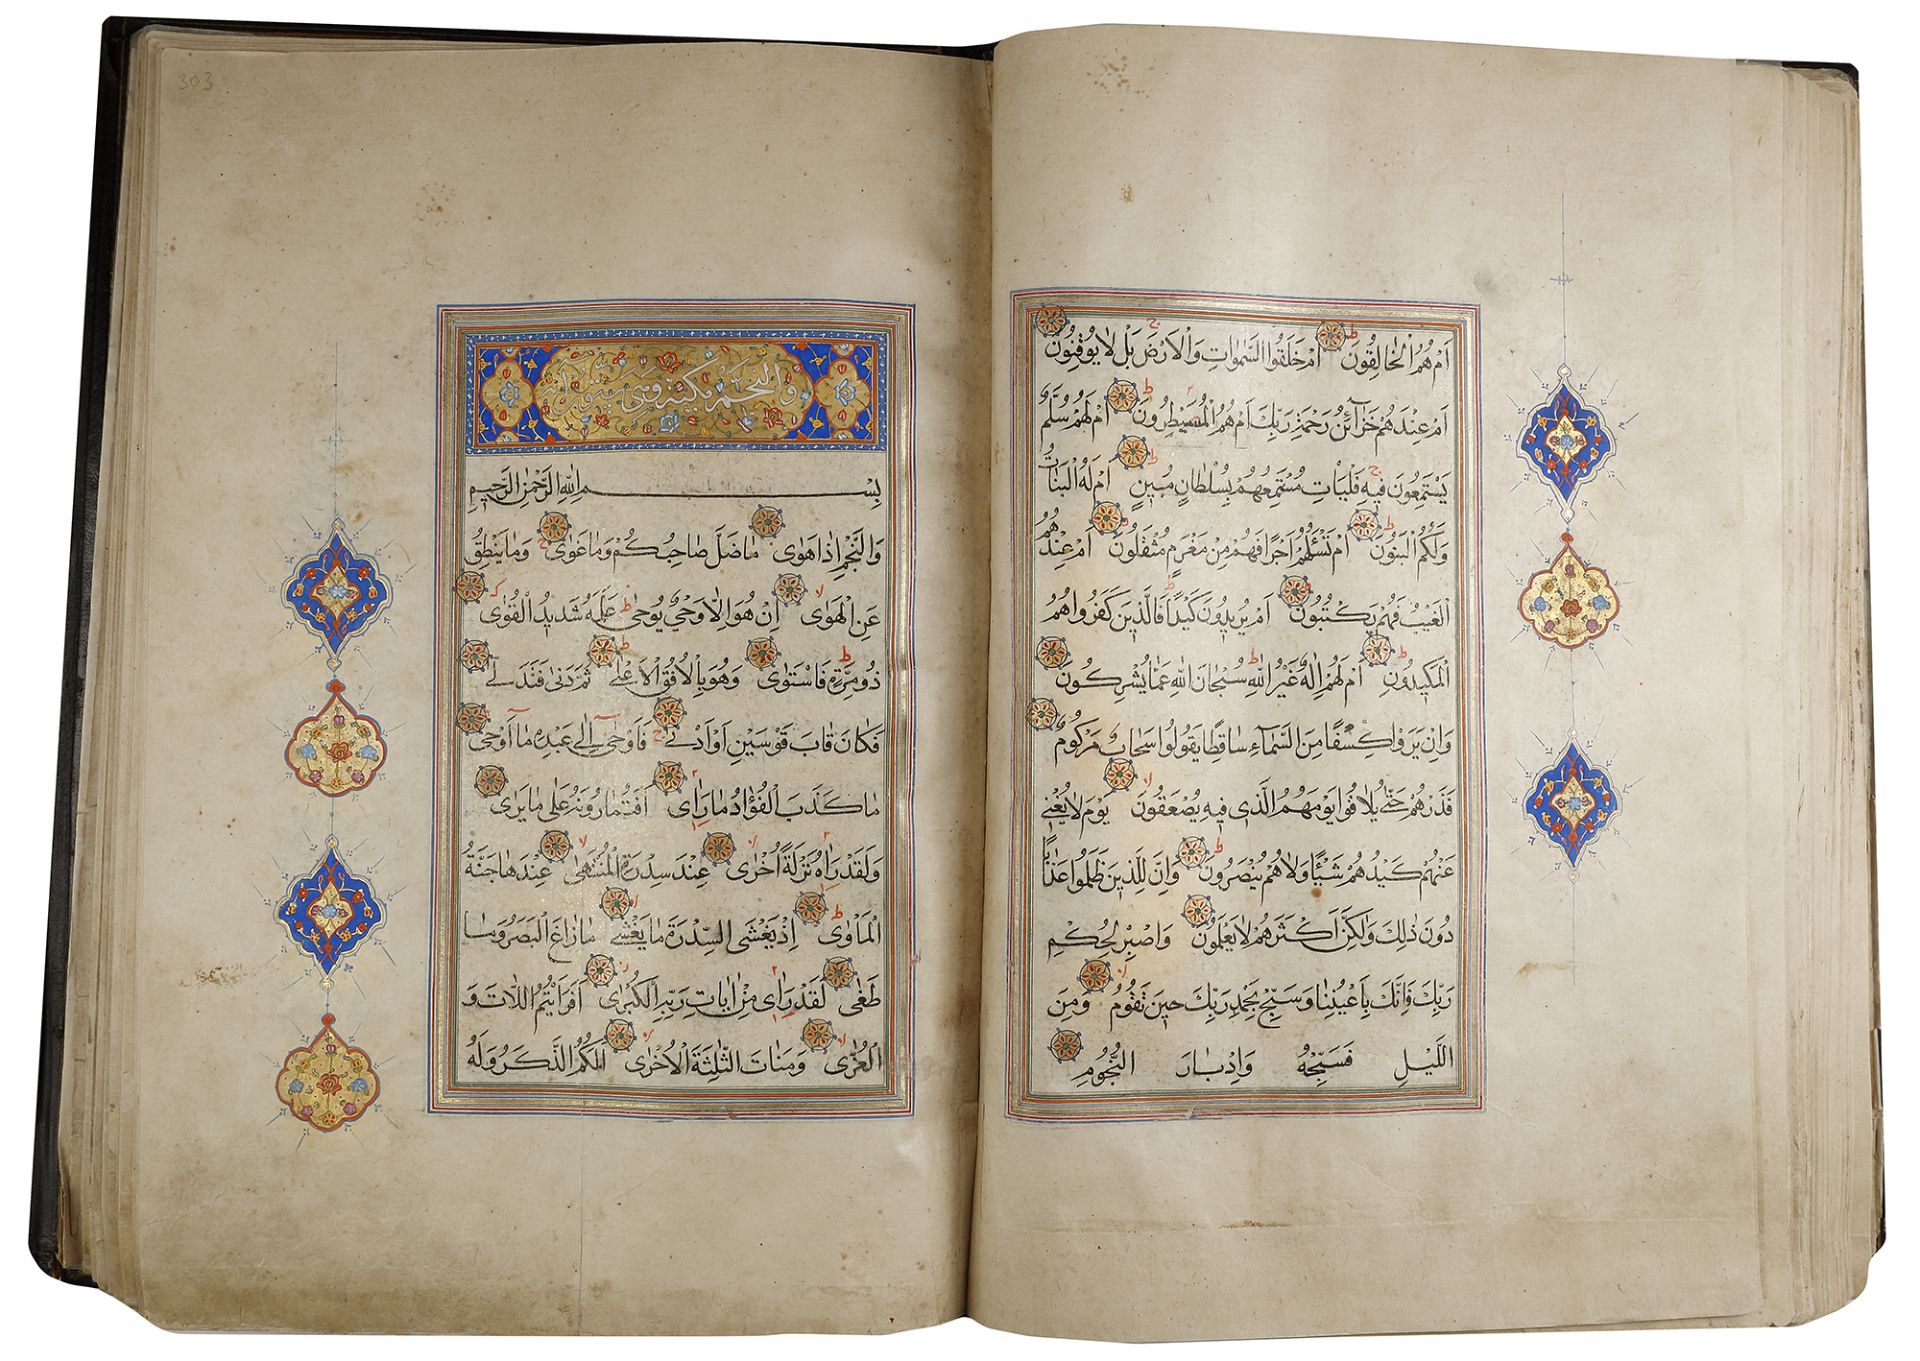 اَمْ هُمُ الْخَالِقُونَ اَمْ خَلَقُوا السَّمٰوَاتِ وَالْاَرْضَ بَلْ لَا يُوقِنُونَ
اَمْ عِنْدَهُمْ خَزَآئِنُ رَحْمَةِ رَبِّكَ اَمْ هُمُ الْمُسَيْطِرُونَ اَمْ لَهُمْ سُلَّمٌ
يَسْتَمِعُونَ فِيهِ فَلْيَاْتِ مُسْتَمِعُهُمْ بِسُلْطَانٍ مُبِينٍ اَمْ لَهُ الْبَنَاتُ
وَلَكُمُ الْبَنُونَ اَمْ تَسْئَلُهُمْ اَجْرًا فَهُمْ مِنْ مَغْرَمٍ مُثْقَلُونَ اَمْ عِنْدَهُمُ
الْغَيْبُ فَهُمْ يَكْتُبُونَ اَمْ يُرِيدُونَ كَيْدًا فَالَّذِينَ كَفَرُوا هُمُ
الْمَكِيدُونَ اَمْ لَهُمْ اِلٰهٌ غَيْرُ اللّٰهِ سُبْحَانَ اللّٰهِ عَمَّا يُشْرِكُونَ
وَاِنْ يَرَوْا كِسْفًا مِنَ السَّمَآءِ سَاقِطًا يَقُولُوا سَحَابٌ مَرْكُومٌ
فَذَرْهُمْ حَتّٰى يُلَاقُوا يَوْمَهُمُ الَّذِى فِيهِ يُصْعَقُونَ يَوْمَ لَا يُغْنِى
عَنْهُمْ كَيْدُهُمْ شَيْئًا وَلَا هُمْ يُنْصَرُونَ وَاِنَّ لِلَّذِينَ ظَلَمُوا عَذَابًا
دُونَ ذٰلِكَ وَلٰكِنَّ اَكْثَرَهُمْ لَا يَعْلَمُونَ وَاصْبِرْ لِحُكْمِ
رَبِّكَ فَاِنَّكَ بِاَعْيُنِنَا وَسَبِّحْ بِحَمْدِ رَبِّكَ حِينَ تَقُومُ وَمِنَ
اللَّيْلِ فَسَبِّحْهُ وَاِدْبَارَ النُّجُومِ
303
والنجم مكية وهى ستون
بِسْمِ اللّٰهِ الرَّحْمٰنِ الرَّحِيمِ
وَالنَّجْمِ اِذَا هَوٰى مَا ضَلَّ صَاحِبُكُمْ وَمَا غَوٰى وَمَا يَنْطِقُ
عَنِ الْهَوٰى اِنْ هُوَ اِلَّا وَحْىٌ يُوحٰى عَلَّمَهُ شَدِيدُ الْقُوٰى
ذُو مِرَّةٍ فَاسْتَوٰى وَهُوَ بِالْاُفُقِ الْاَعْلٰى ثُمَّ دَنٰى فَتَدَلّٰى
فَكَانَ قَابَ قَوْسَيْنِ اَوْ اَدْنٰى فَاَوْحٰى اِلٰى عَبْدِهِ مَا اَوْحٰى
مَا كَذَبَ الْفُؤَادُ مَا رَاٰى اَفَتُمَارُونَهُ عَلٰى مَا يَرٰى
وَلَقَدْ رَاٰهُ نَزْلَةً اُخْرٰى عِنْدَ سِدْرَةِ الْمُنْتَهٰى عِنْدَهَا جَنَّةُ
الْمَاْوٰى اِذْ يَغْشَى السِّدْرَةَ مَا يَغْشٰى مَا زَاغَ الْبَصَرُ وَمَا
طَغٰى لَقَدْ رَاٰى مِنْ اٰيَاتِ رَبِّهِ الْكُبْرٰى اَفَرَاَيْتُمُ اللَّاتَ وَ
الْعُزّٰى وَمَنَاتَ الثَّالِثَةَ الْاُخْرٰى اَلَكُمُ الذَّكَرُ وَلَهُ